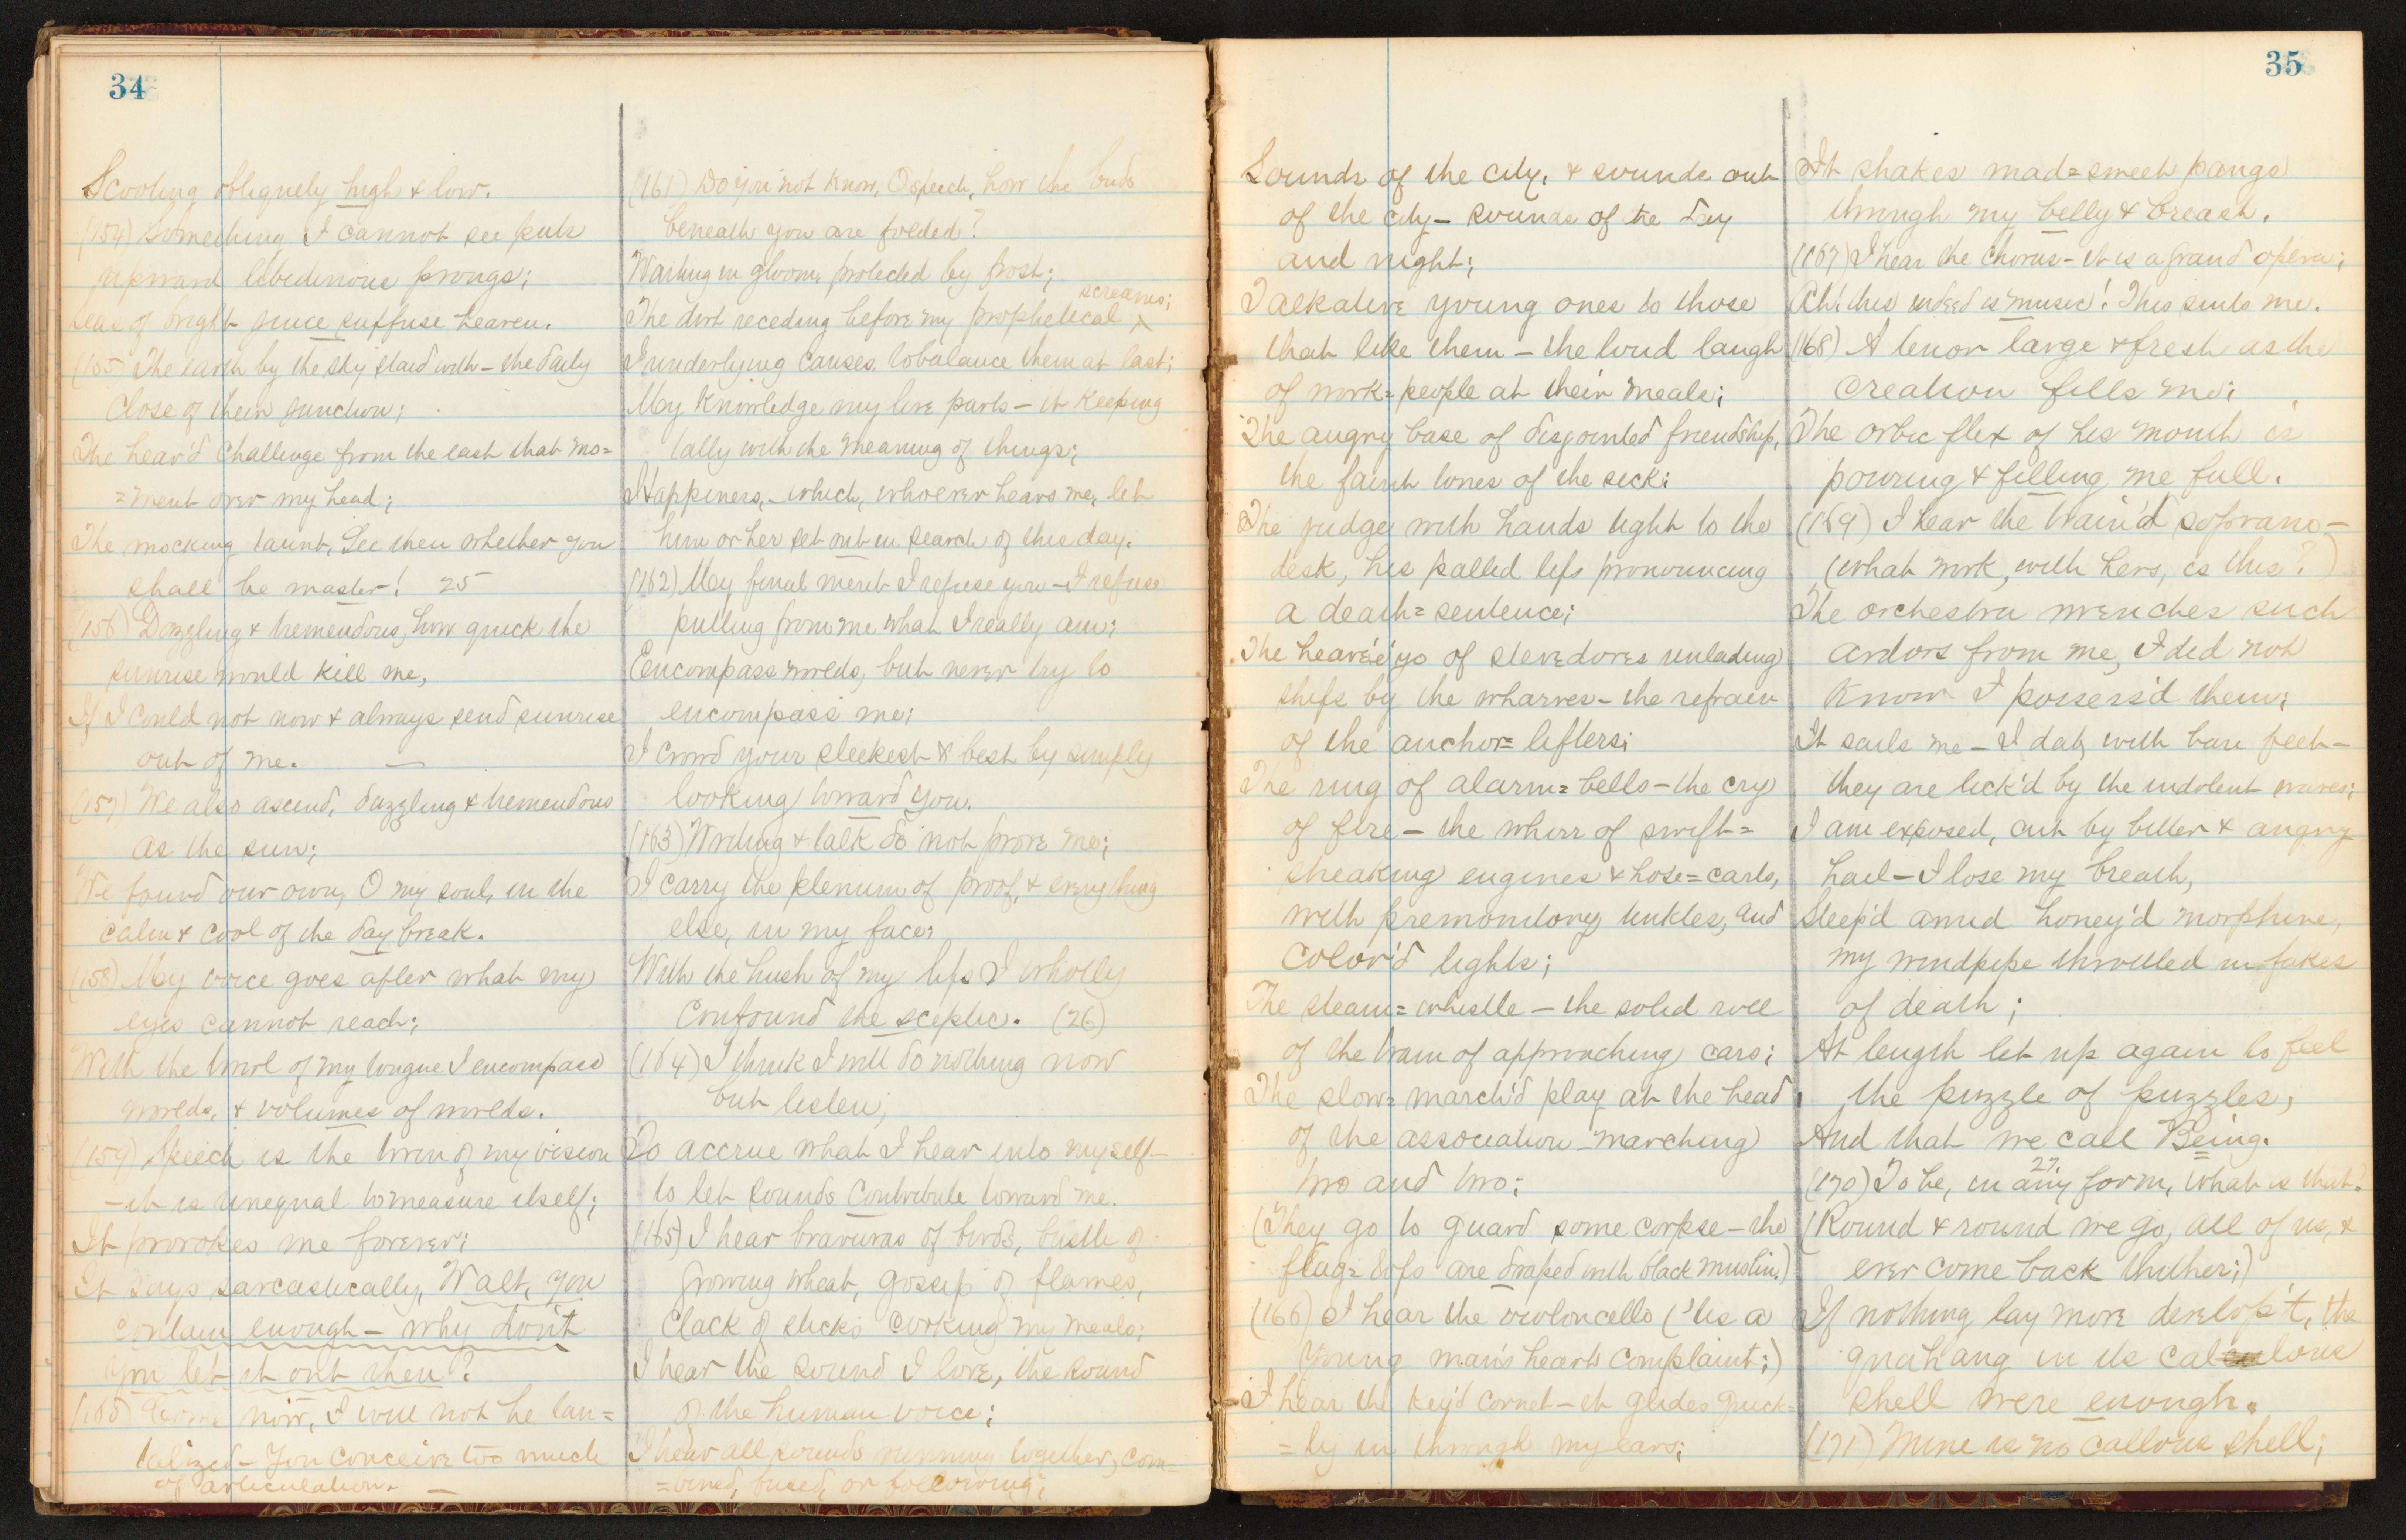 34
Scooting obliquely high & low.
(154) Something I cannot see puts
upward libidinous prongs;
Seas of bright juice suffuse heaven.
(155 The earth by the sky staid with – the daily
close of their junction;
The heav'd challenge from the east that mo=
=ment over my head;
The mocking taunt, See then whether you
shall be master! 25
(156) Dazzling & tremendous, how quick the
sunrise would kill me,
If I could not now & always send sunrise
out of me. —
(157) We also ascend, dazzling & tremendous
as the sun;
We found our own, O my soul, in the
calm & cool of the daybreak.
(158) My voice goes after what my
eyes cannot reach;
With the twirl of my tongue I encompass
worlds, & volumes of worlds.
(159) Speech is the twin of my vision
– it is unequal to measure itself;
It provokes me forever;
It says sarcastically, Walt, you
contain enough – why don't
you let it out then?
(160) Come now, I will not be tan=
talized – You conceive too much
of articulation. —
(161) Do you not know, O speech, how the buds
beneath you are folded?
Waiting in gloom, protected by frost;
screams;
The dirt receding before my prophetical ^
I underlying causes, to balance them at last;
My knowledge my live parts – it keeping
tally with the meaning of things;
Happiness, – which, whoever hears me, let
him or her set out in search of this day.
(162) My final merit I refuse you – I refuse
putting from me what I really am;
Encompass worlds, but never try to
encompass me;
I crowd your sleekest & best by simply
looking toward you.
(163) Writing & talk do not prove me;
I carry the plenum of proof, & every thing
else, in my face;
With the hush of my lips I wholly
confound the sceptic. (26)
(164) I think I will do nothing now
but listen,
To accrue what I hear into myself –
to let sounds contribute toward me.
(165) I hear bravuras of birds, bustle of
growing wheat, gossip of flames,
clack of sticks cooking my meals;
I hear the sound I love, the sound
of the human voice;
I hear all sounds running together, com=
=bined, fused, or following;
35
Sounds of the city, & sounds out
of the city – sounds of the day
and night;
Talkative young ones to those
that like them – the loud laugh
of work=people at their meals;
The angry base of disjointed friendship,
the faint tones of the sick;
The judge with hands tight to the
desk, his pallid lips pronouncing
a death=sentence;
The heave'e'yo of stevedores unlading
ships by the wharves – the refrain
of the anchor=lifters;
The ring of alarm=bells – the cry
of fire – the whirr of swift=
streaking engines & hose=carts,
with premonitory tinkles, and
color'd lights;
The steam=whistle – the solid roll
of the train of approaching cars;
The slow=march'd play at the head
of the association – marching
two and two;
(They go to guard some corpse – the
flag=tops are draped with black muslin.)
(166) I hear the violoncello ('tis a
young man's heart's complaint;)
I hear the key'd cornet – it glides quick=
=ly in through my ears;
It shakes mad=sweet pangs
through my belly & breast.
(167) I hear the chorus – it is a grand opera;
Ah! this indeed is music! This suits me.
(168) A tenor large & fresh as the
creation fills me;
The orbic flex of his mouth is
pouring & filling me full.
(169) I hear the train'd soprano –
(what work, with hers, is this?)
The orchestra wrenches such
ardors from me, I did not
know I possess'd them;
It sails me – I dab with bare feet –
they are lick'd by the indolent waves;
I am exposed, cut by bitter & angry
hail – I lose my breath,
Steep'd amid honey'd morphine,
my windpipe throttled in fakes
of death;
At length let up again to feel
the puzzle of puzzles,
And that we call Being.
27
(170) To be, in any form, what is that?
(Round & round we go, all of us, &
ever come back thither;)
If nothing lay more develop't, the
quahaug in its calculous
shell were enough.
(171) Mine is no callous shell;